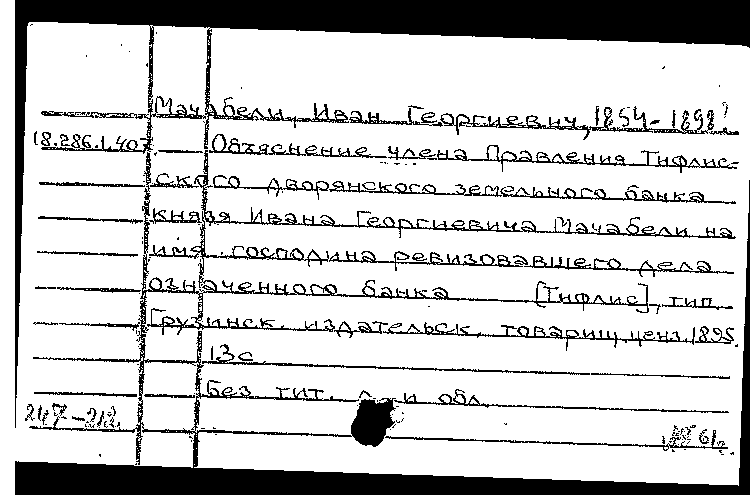 Мачабели, Иван Георгиевич, 1854-1898?
18.286.1.407. Объяснение члена Правления Тифлис-
ского дворянского земельного банка
князя Ивана Георгиевича Мачабели на
имя господина ревизовавшего дела
означенного банка [Тифлис], тип.
Грузинск. издательск. товарищ. ценз. 1895.
13 с.
Без тит. л. и обл.
247-212.